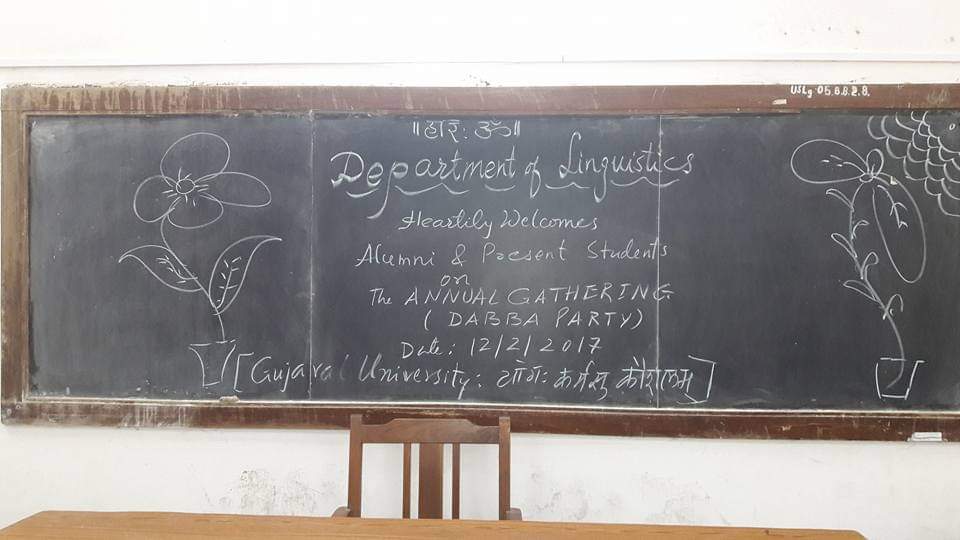 USLg-05.6.6.2.8.
॥ हरि: ॐ ॥
Department of Linguistics
Heartily Welcomes
Alumni & Present Students
on
The ANNUAL GATHERING
( DABBA PARTY)
Date: 12/2/2017
[Gujarat University: योगः कर्मसु कौशलम्]